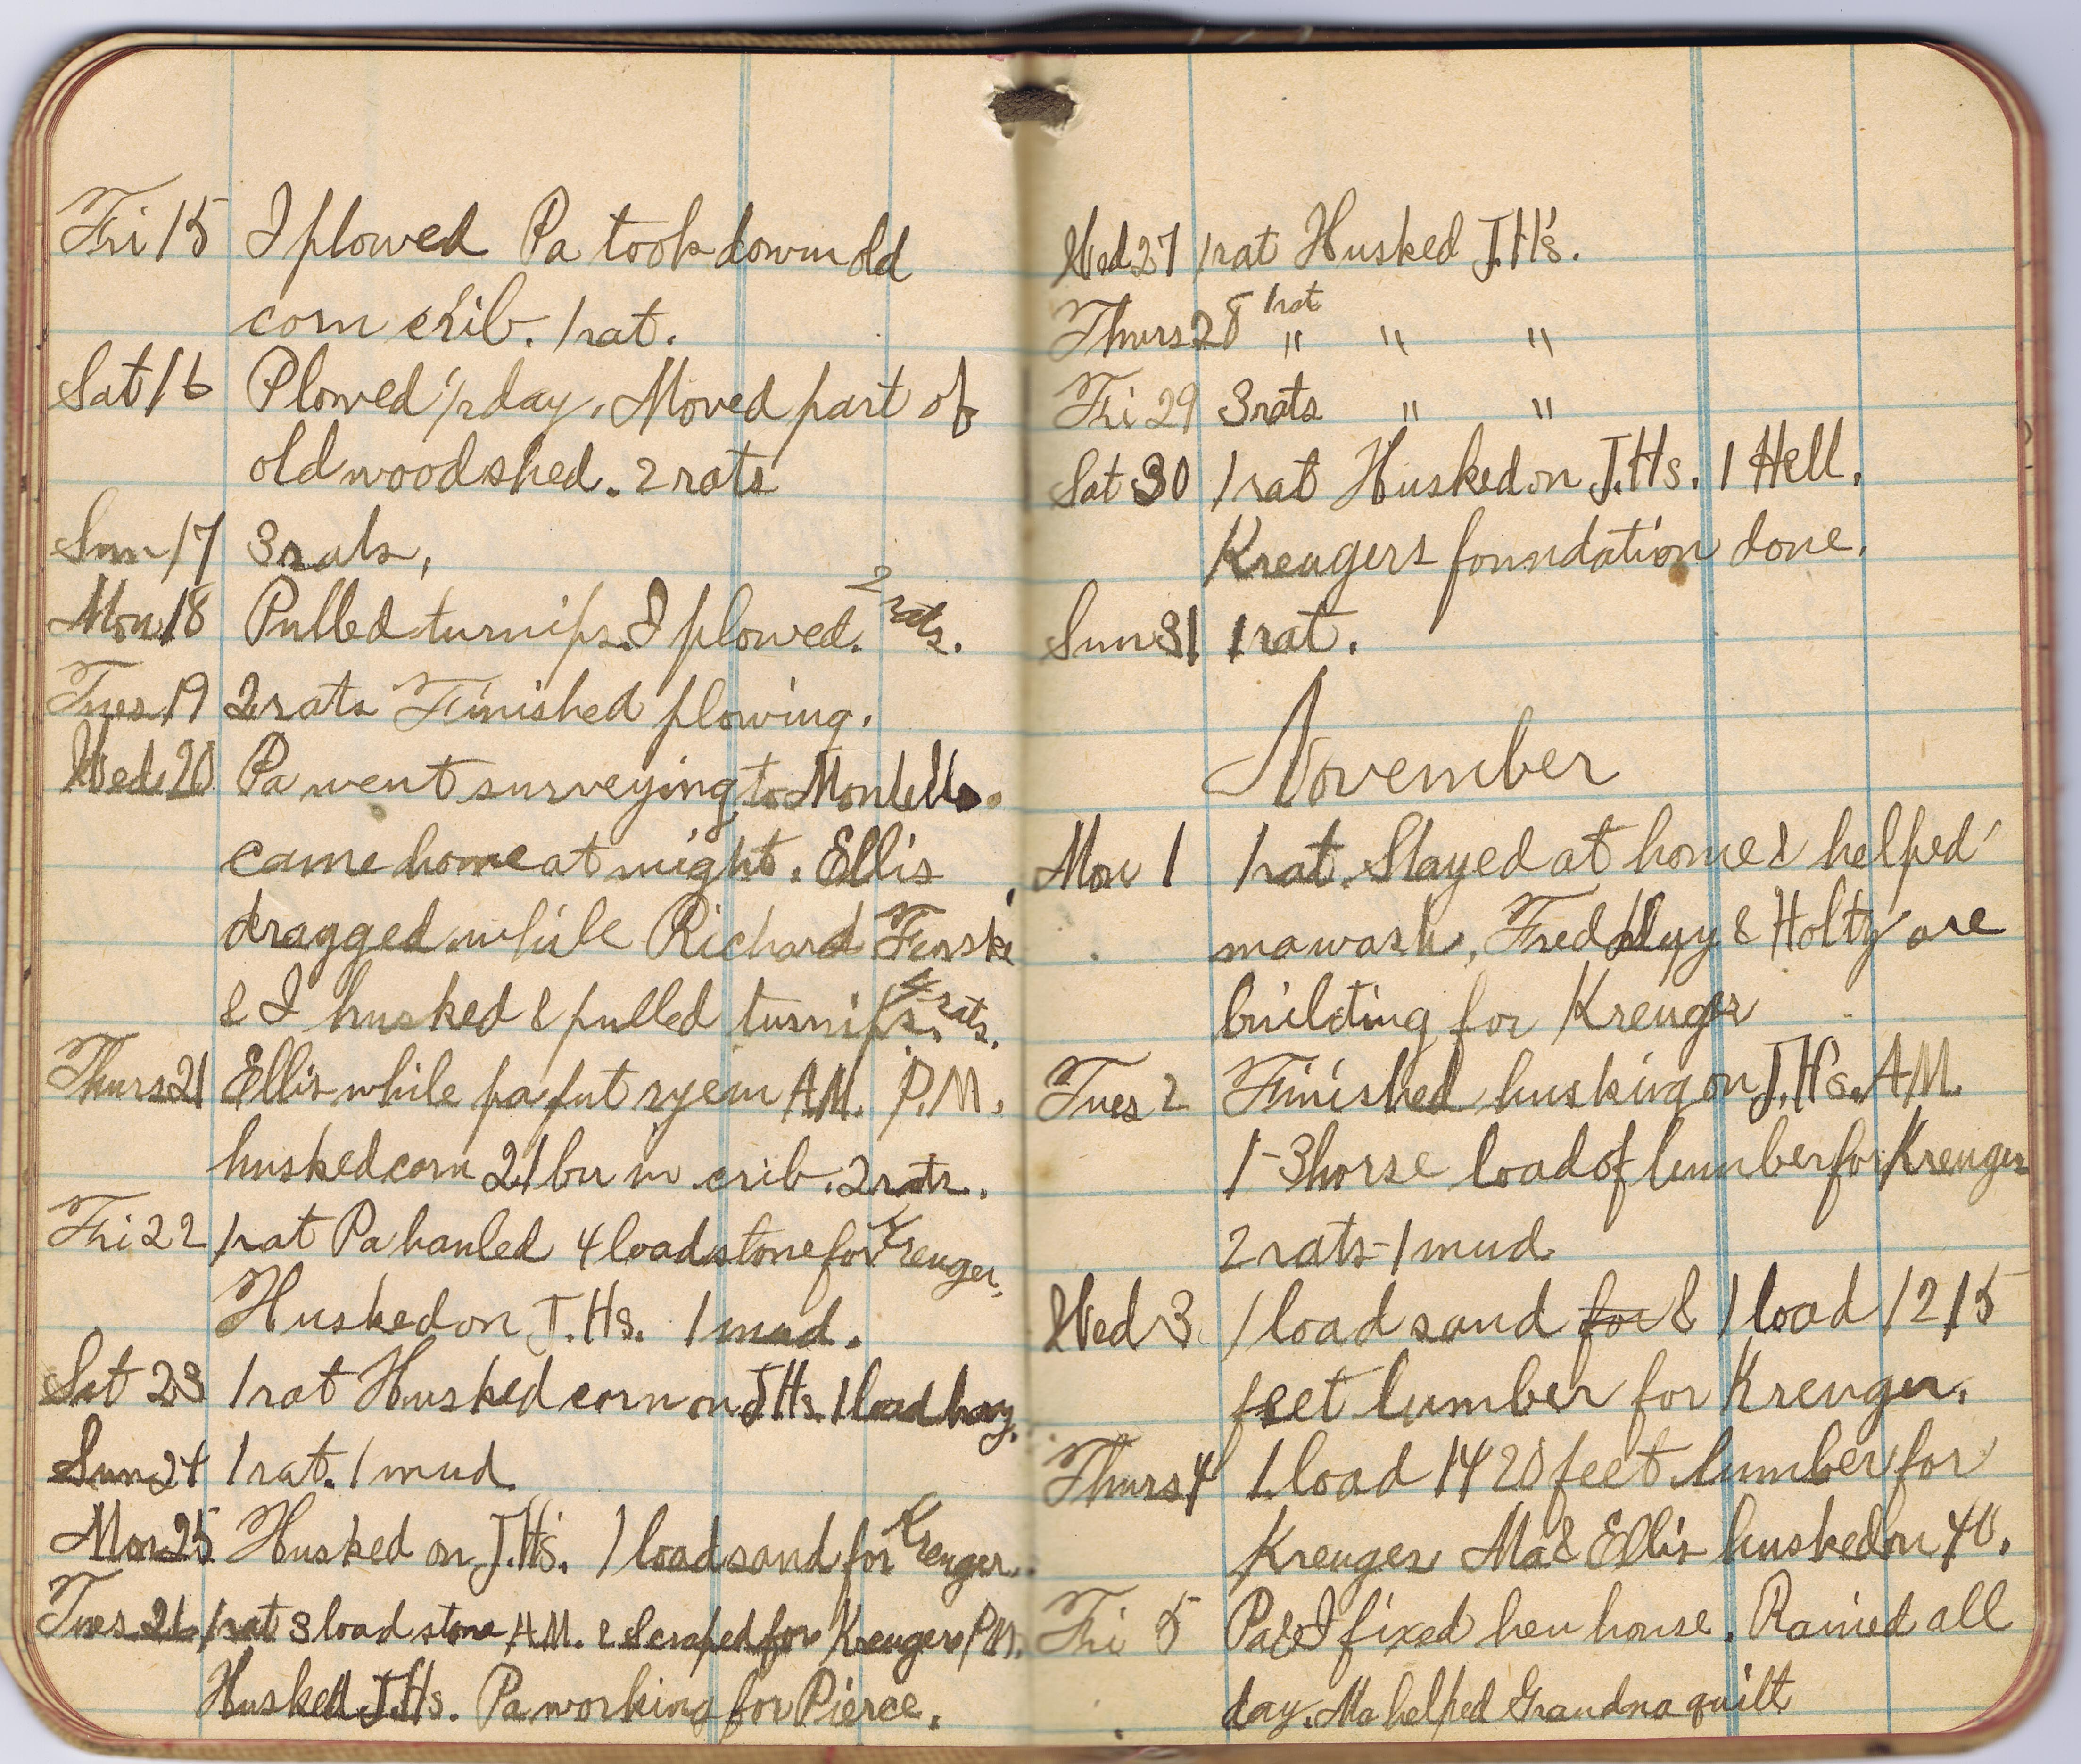 Fri 15 I plowed Pa took down old
corn crib. 1 rat.
Sat 16 Plowed 1/2 day. Moved part of
old woodshed. 2 rats
Sun 17 3 rats.
Mon 18 Pulled turnips. I plowed. 2 rats.
Tues 19 2 rats Finished plowing.
Wed 20 Pa went surveying to Montello.
came home at night. Ellis
dragged while Richard Fenske
& I husked & pulled turnips. 4 rats.
Thurs 21 Ellis while pa put rye in A.M. P.M.
husked corn 21 bu in crib. 2 rats.
Fri 22 1 rat Pa hauled 4 load stone for Kreuger.
Husked on J.Hs. 1 mud.
Sat 23 1 rat Husked corn on J Hs. 1 load hay.
Sun 24 1 rat. 1 mud.
Mon 25 Husked on J.H's. 1 load sand for Kreuger.
Tues 26 1 rat 3 load stone A.M. & Scraped for Kreugers P.M.
Husked J.Hs. Pa working for Pierce.
Wed 27 1 rat Husked J.H's.
Thurs 28 1 rat " " "
Fri 29 3 rats " "
Sat 30 1 rat Husked on J.Hs. 1 Hell.
Kreugers foundation done.
Sun 31 1 rat.
November
Mon 1 1 rat. Stayed at home & helped
ma wash. Fred & Holty are
building for Kreuger
Tues 2 Finished husking on J.H's. A.M.
1-3 horse load of lumber for Kreuger
2 rats-1 mud
Wed 3 1 load sand for & 1 load 1215
feet lumber for Kreuger.
Thurs 4 1 load 1420 feet lumber for
Kreuger Ma & Ellis husked on 40.
Fri 5 Pa & I fixed hen house. Rained all
day. Ma helped Grandma quilt